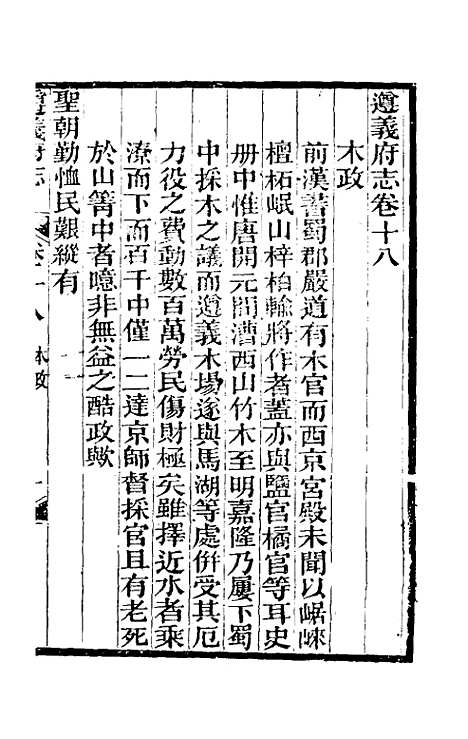 遵義府志卷十八
木政
前漢書蜀郡嚴道有木官而西京宮殿未聞以崌崍
檀柘岷山梓柏輸將作者蓋亦與鹽官橘官等耳史
册中惟唐開元間漕西山竹木至明嘉隆乃屢下蜀
中採木之議而遵義木場遂與馬湖等處併受其厄
力役之費動數百萬勞民傷財極矣雖擇近水者乘
潦而下而百千中僅一二達京師督採官且有老死
於山箐中者噫非無益之酷政歟
聖朝勤恤民艱縱有
遵義府志
卷十八 木政
一